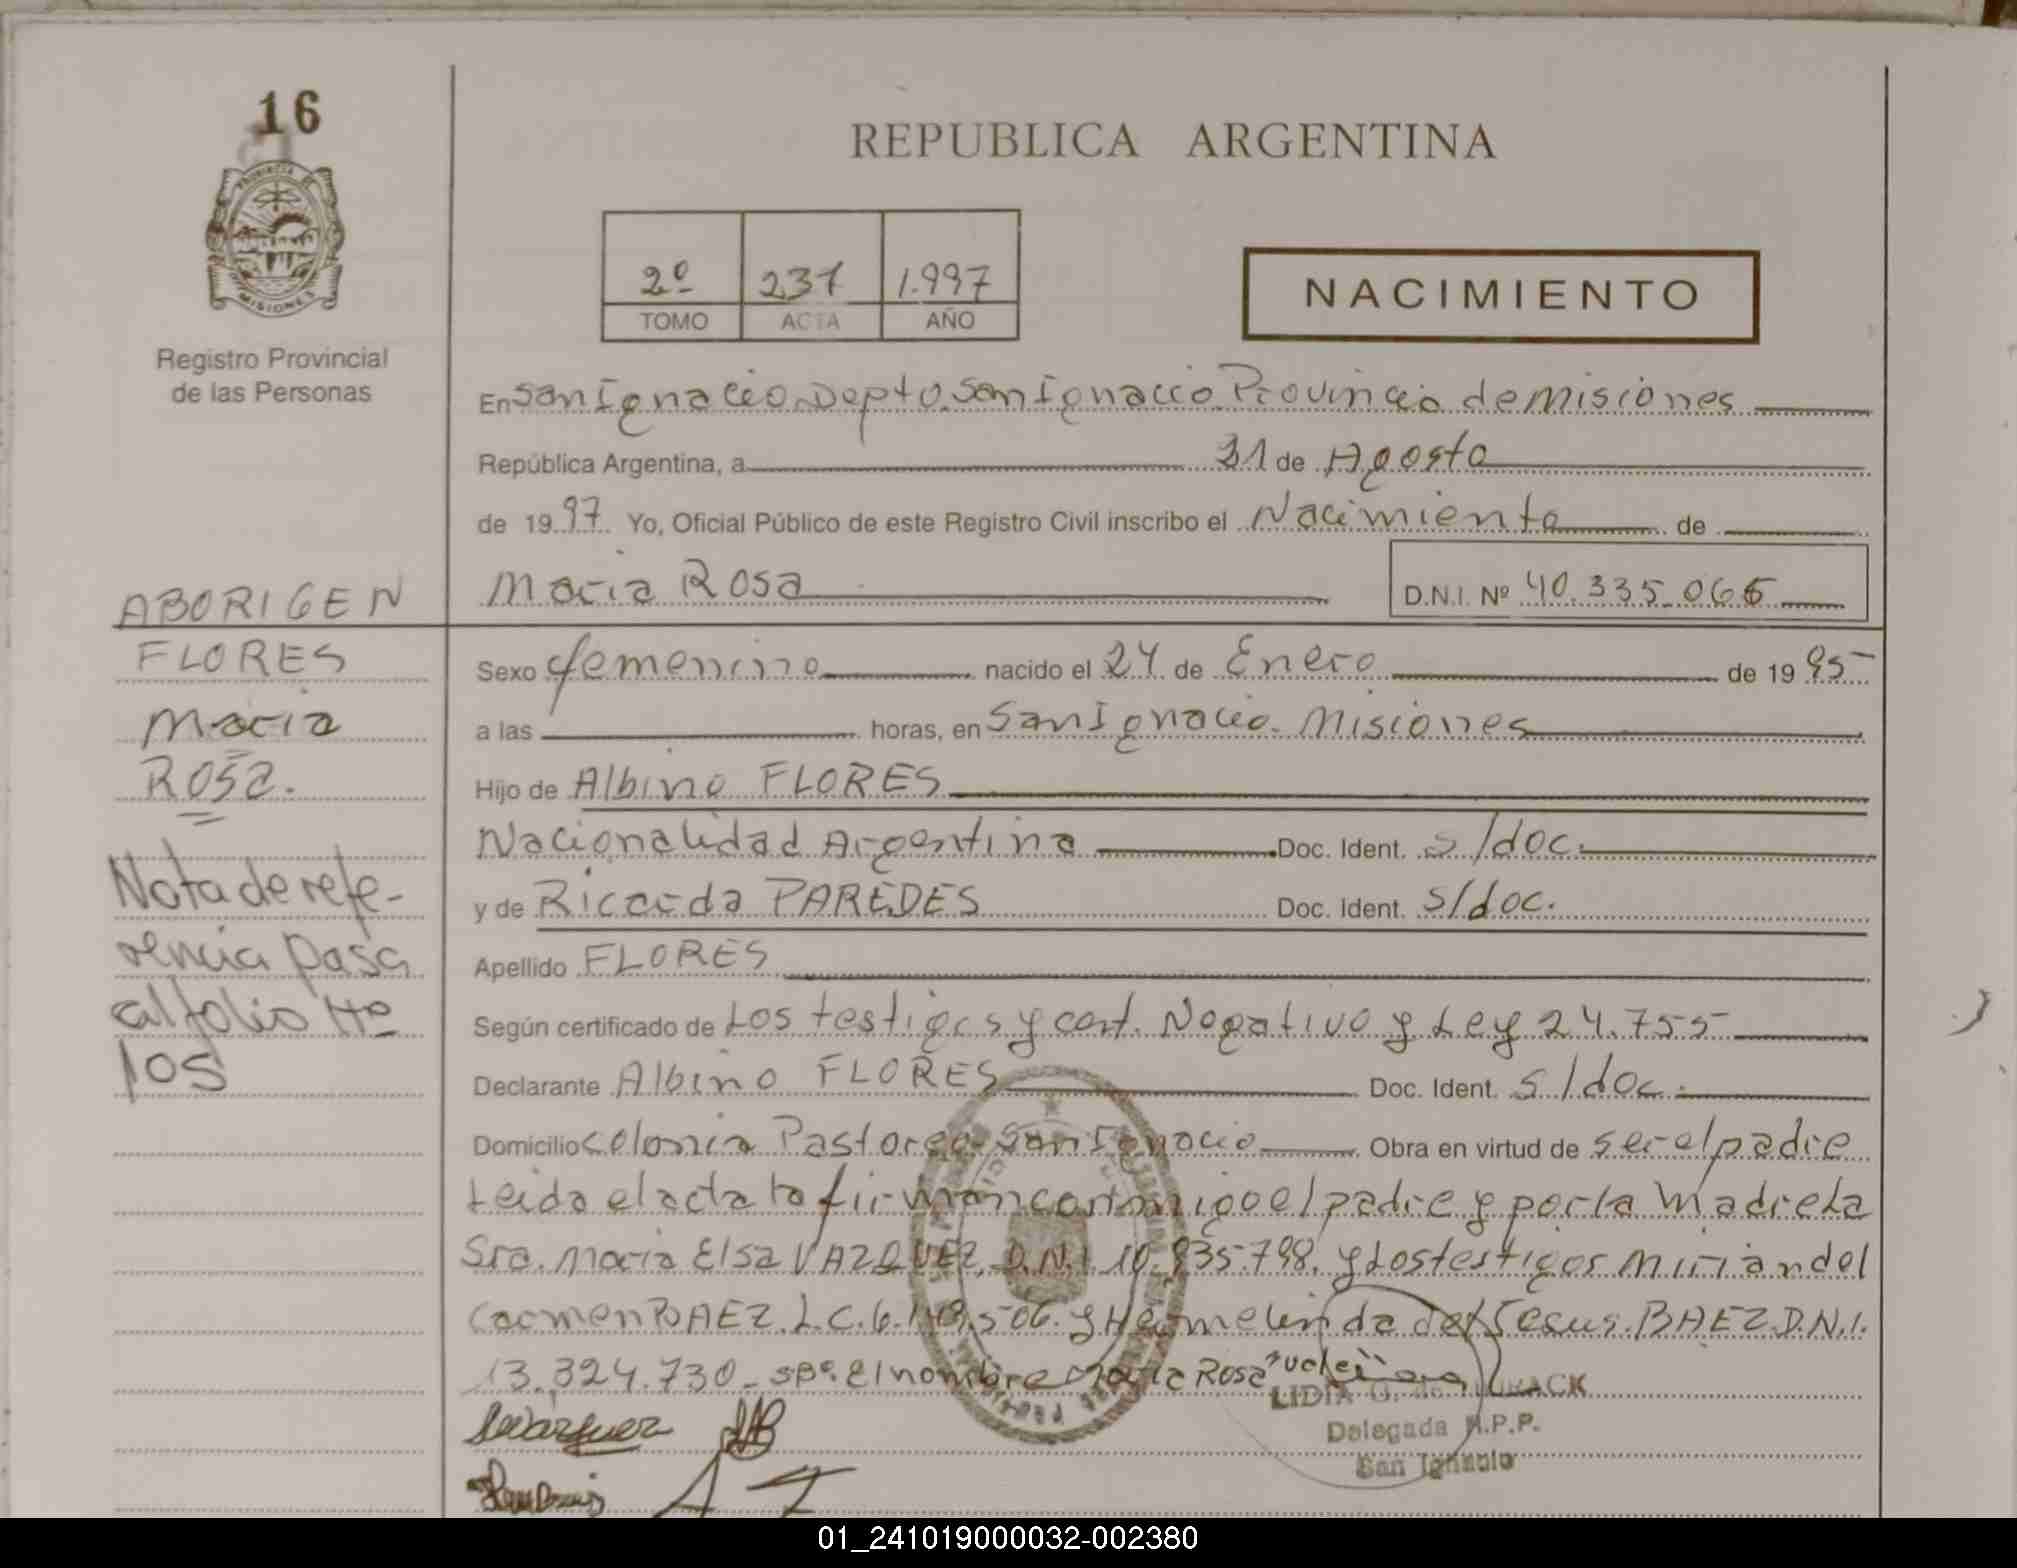 16
PROVINCIA DE
MISIONES
Registro Provincial
de las Personas
REPUBLICA ARGENTINA
2º 237 1.997
TOMO ACTA AÑO
NACIMIENTO
En San Ignacio. Depto. San Ignacio Provincia de misiones
República Argentina, a 21 de Agosto
de 1997 Yo, Oficial Público de este Registro Civil inscribo el Nacimiento de
Maria Rosa
D.N.I. Nº 40.335.066
ABORIGEN
FLORES
Maria
Rosa.
Nota de refe-
rencia pasa
al folio Nº
105
Sexo femenino nacido el 24 de Enero de 1995
a las horas, en San Ignacio. Misiones
Hijo de Albino FLORES
Nacionalidad Argentina Doc. Ident. s/doc.
y de Ricarda PAREDES Doc. Ident. s/doc.
Apellido FLORES
Según certificado de Los testigos y cert. Negativo y Ley 24.755
Declarante Albino FLORES Doc. Ident. s/doc.
Domicilio colonia Pastoreo San Ignacio Obra en virtud de ser el padre
Leida el acta la firman conmigo el padre y por la Madre la
Sra. Maria Elsa VAZQUEZ, D.N.I. 10.935.798. y Los testigos Mirian del
Carmen BAEZ. L.C. 6.148.506. y Hermelinda del Jesus. BAEZ D.N.I.
13.324.730 _ spº. El nombre Maria Rosa "vale"
LIDIA G. de
Delegada R.P.P.
San Ignacio
01_241019000032-002380